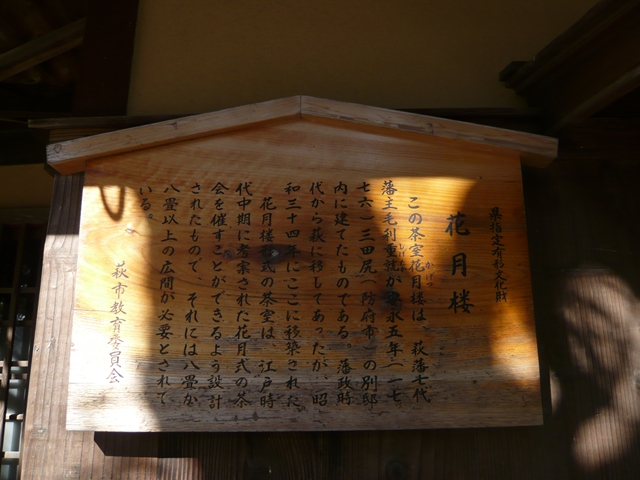 県指定有形文化財
花月楼
この茶室花月楼は、萩藩七代
藩主毛利重就が安永五年(一七
七六)三田尻(防府市)の別邸
内に建てたものである。藩政時
代から萩に移してあったが、昭
和三十四年にここに移築された
花月楼形式の茶室は、江戸時
代中期に考案された花月式の茶
会を催すことができるよう設計
されたもので、それには八畳か
八畳以上の広間が必要とされて
いる。
萩市教育委員会